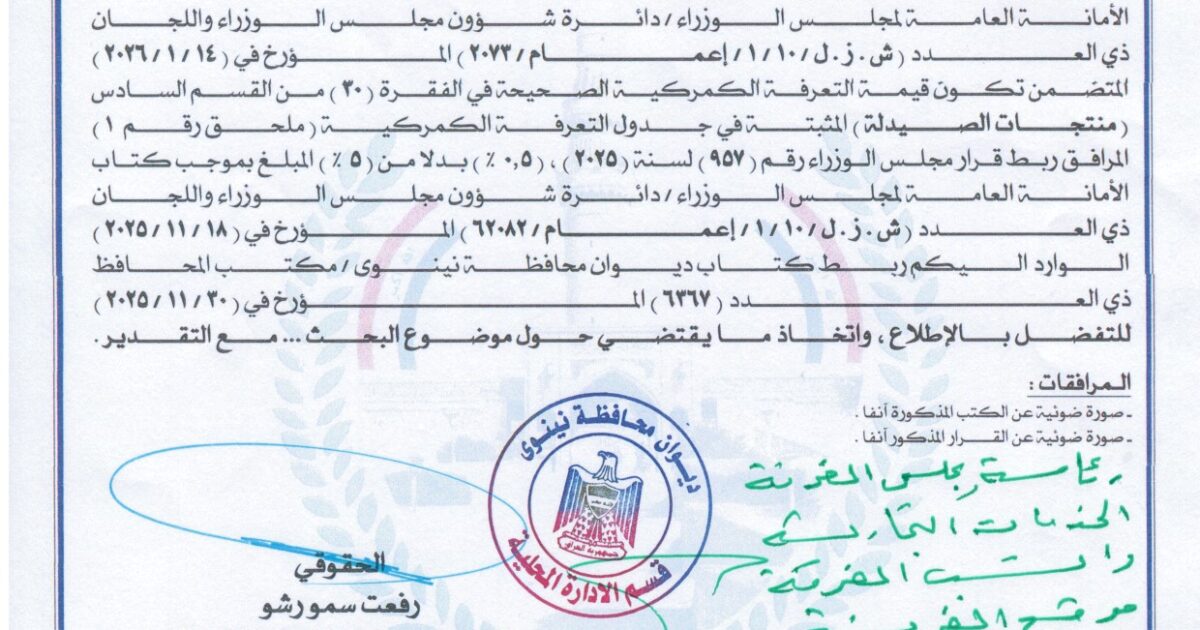 الأمانة العامة لمجلس الوزراء/دائرة شؤون مجلس الوزراء واللجان
ذي العدد (ش.ز.ل/١/١٠/إعمام/٢٠٧٣) المؤرخ في (٢٠٢٦/١/١٤)
المتضمن تكون قيمة التعرفة الكمركية الصحيحة في الفقرة (٣٠) من القسم السادس
(منتجات الصيدلة) المثبتة في جدول التعرفة الكمركية (ملحق رقم ١)
المرافق ربط قرار مجلس الوزراء رقم (٩٥٧) لسنة (٢٠٢٥)، (٠,٥ ٪) بدلا من (٥ ٪) المبلغ بموجب كتاب
الأمانة العامة لمجلس الوزراء/دائرة شؤون مجلس الوزراء واللجان
ذي العدد (ش.ز.ل/١/١٠/إعمام/٦٢٠٨٢) المؤرخ في (٢٠٢٥/١١/١٨)
الوارد اليكم ربط كتاب ديوان محافظة نينوى/مكتب المحافظ
ذي العدد (٦٣٦٧) المؤرخ في (٢٠٢٥/١١/٣٠)
للتفضل بالإطلاع، واتخاذ ما يقتضي حول موضوع البحث ... مع التقدير.
المرافقات:
ـ صورة ضوئية عن الكتب المذكورة آنفا .
ـ صورة ضوئية عن القرار المذكور آنفا .
ديوان محافظة نينوى
جمهورية العراق
قسم الادارة المحلية
رئاسة مجلس الغرفة
الخدمات التجارية
الغرفة
موقع الغرفة
الحقوقي
رفعت سمو رشو